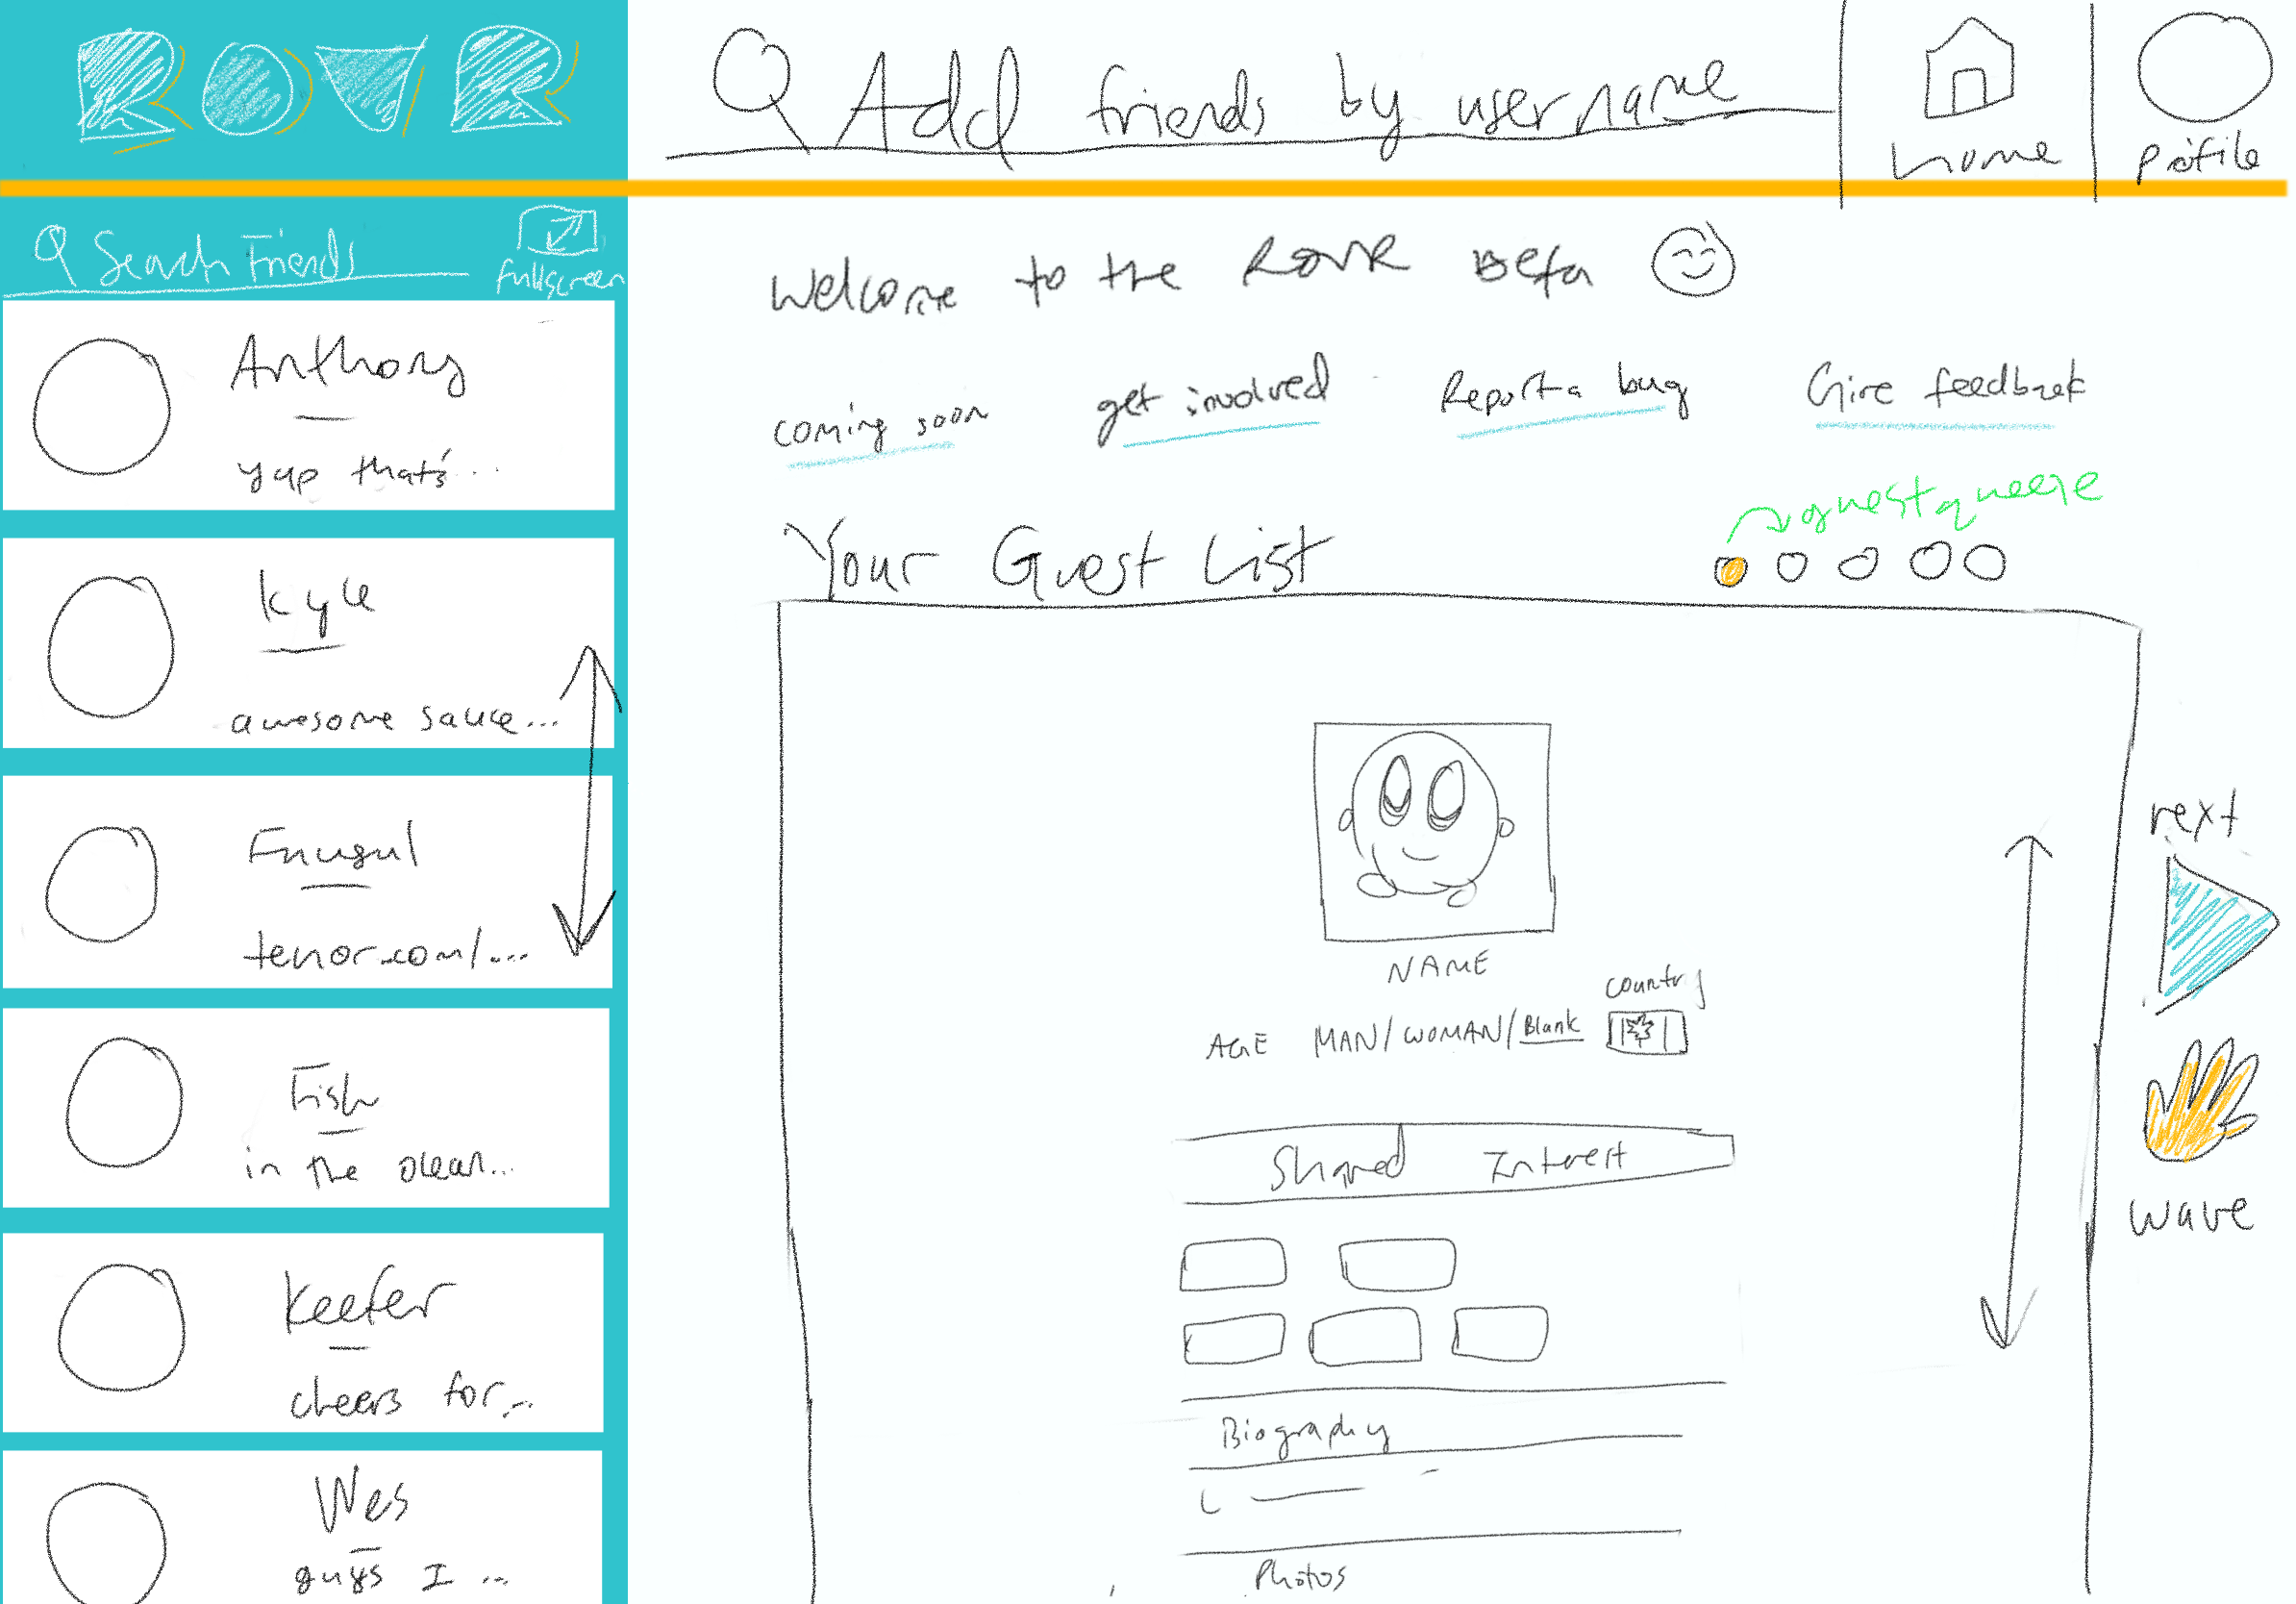 ROVR
Add friends by username
home
profile
Search Friends
fullscreen
Anthony
yap that's...
Kyle
awesome sauce...
Frugul
tenor.com/...
Fish
in the ocean...
Keefer
cheers for...
Wes
guys I ...
Welcome to the ROVR Beta
coming soon
get involved
Report a bug
Give feedback
guest queue
Your Guest List
NAME
country
AGE MAN/WOMAN/Blank
Shared Interest
Biography
Photos
next
wave